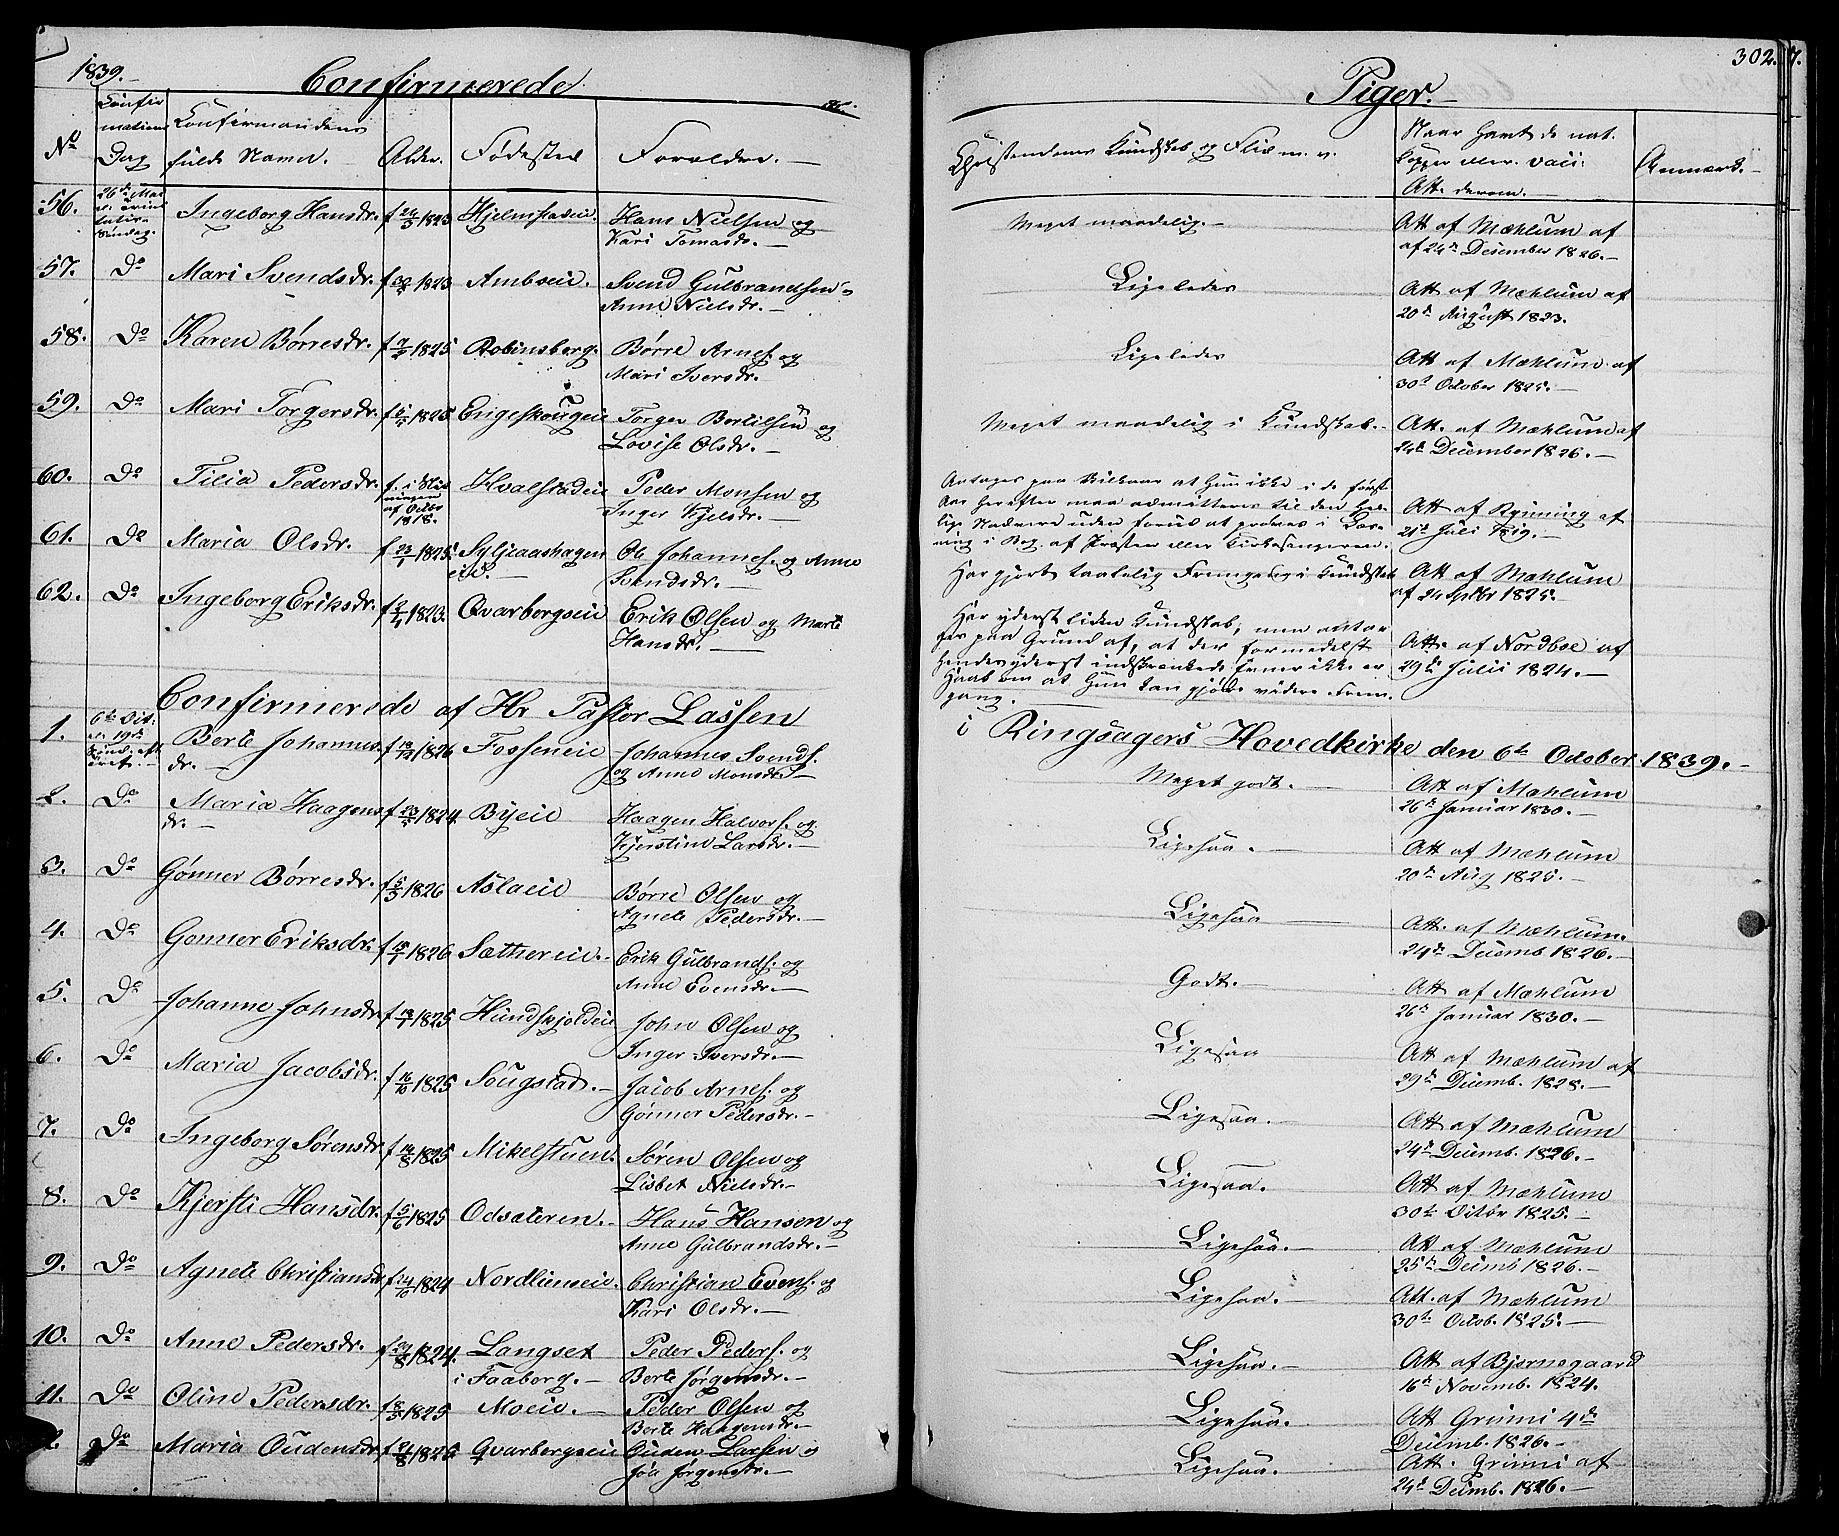 1839.
Confirmerede
Piger.
302.
7.
No
Confir
mations
Dag
Confirmandens
fulde Navn.
Alder.
Fødested
Forældre.
Christendoms Kundskab og Flid m. v.
Naar havt de nat.
Kopper eller Vacci.
Att. derom.
Anmærk.
56. 26de Mai
Søndag.
Ingeborg Hansdr. f 24/3 1823 Hjelmstadeie. Hans Nielsen og
Kari Tomasdr.
Meget maadelig.
Att af Mæhlum af
af 24de December 1826.
57. Do Mari Svendsdr. 1823 Ambseie. Svend Gulbrandsen
Anne Nielsdr.
Ligeledes
Att af Mæhlum af
20de August 1823.
58. Do Karen Børresdr. f 1825 Robinsberg. Børre Arnes. og
Mari Iversdr.
Ligeledes
Att af Mæhlum af
30te October 1825.
59. Do Mari Torgersdr. f 1825 Engeskougeie Torger Bertilsen og
Lovise Olsdr.
Meget maadelig i Kundskab.
Att. af Mæhlum af
24de December 1826.
60. Do Tilia Pedersdr. f. i Slut
ningen
af Octbr
1818.
Hvalstadeie Peder Monsen og
Inger Kjelsdr.
Antages paa Vilkaar at hun ikke i de første
Aar herefter maa admitteres til den hel-
lige Nadvere uden forud at prøves i Læs-
ning i Bog af Præsten eller Kirkesangeren.
Att af Rynning af
21de Juli 1819.
61. Do Maria Olsdr. f 23/1 1825 Syljeaashagen
eie.
Ole Johannes. og Anne
Svendsdr.
Har gjort taalelig Fremgang i Kundskab
Att af Mæhlum
af 24 Septbr 1825.
62. Do Ingeborg Eriksdr. f 1823. Qvarbergseie Erik Olsen og Marte
Hansdr.
Har yderst liden Kundskab, men anta-
ges paa Grund af, at der formedelst
hendes yderst indskrænkede Evner ikke er
Haab om at hun kan gjøre videre Frem-
gang.
Att. af Nordboe af
29de Julii 1824.
Confirmerede af Hr Pastor Lassen i Ringsagers Hovedkirke den 6te October 1839.
1. 6te Oct.
19de
Sønd. eft.
Berte Johannes-
dr.
f 18/12 1826 Fosseneie Johannes Svends.
og Anne Monsdr.
Meget godt.
Att af Mæhlum
26de Januar 1830.
2. Do Maria Haagens
dr.
f 1824. Byeie Haagen Halvors. og
Kjerstine Larsdr.
Ligesaa.
Att af Mæhlum
20de Aug 1825.
3. Do Gønner Børresdr. f 5/3 1826 Aslaeie Børre Olsen og
Agnete Pedersdr.
Ligesaa
Att. af Mæhlum.
24de Decemb 1826.
4. Do Gønner Eriksdr. f 18/1 1826 Sættereie. Erik Gulbrands. og
Anne Evensdr.
Godt.
Att af Mæhlum
26de Januar 1830.
5. Do Johanne Johnsdr. f 1825 Hundskjoldeie John Olsen og
Inger Iversdr.
Ligesaa
Att af Mæhlum af
29de Decemb. 1828.
6. Do Maria Jacobsdr. f 16/10 1825 Sougstad. Jacob Arnes. og
Gønner Pedersdr.
Ligesaa.
Att af Mæhlum
24de Decemb. 1826.
7. Do Ingeborg Sørensdr. f 14/8 1825 Mikelstuen. Søren Olsen og
Lisbet Nielsdr.
Ligesaa.
Att af Mæhlum
30te Octbr 1825.
8. Do Kjersti Hansdr. f 5/6 1825 Odsæteren. Hans Hansen og
Anne Gulbrandsdr.
Ligesaa.
Att af Mæhlum
25de Decemb 1826.
9. Do Agnete Christiansd f 24/10 1824 Nordlienseie. Christian Evens. og
Kari Olsdr.
Ligesaa.
Att. af Mæhlum
30te Octob. 1825.
10. Do Anne Pedersdr. f 29/8 1824. Langset
i Faaberg.
Peder Peders. og
Berte Jørgensdr.
Ligesaa.
Att af Bjørnegaard
16de Novemb. 1824.
11. Do Oline Pedersdr. f 8/3 1825 Moeie. Peder Olsen og
Berte Haagensdr.
Ligesaa.
Att Grimi 4de
Decemb. 1826.
2. Do Maria Oudensdr. f 21/8 1825 Qvarbergseie Ouden Larsen og
Joa Jørgensdr.
Ligesaa.
Att. Grimi af
24de Decemb. 1826.